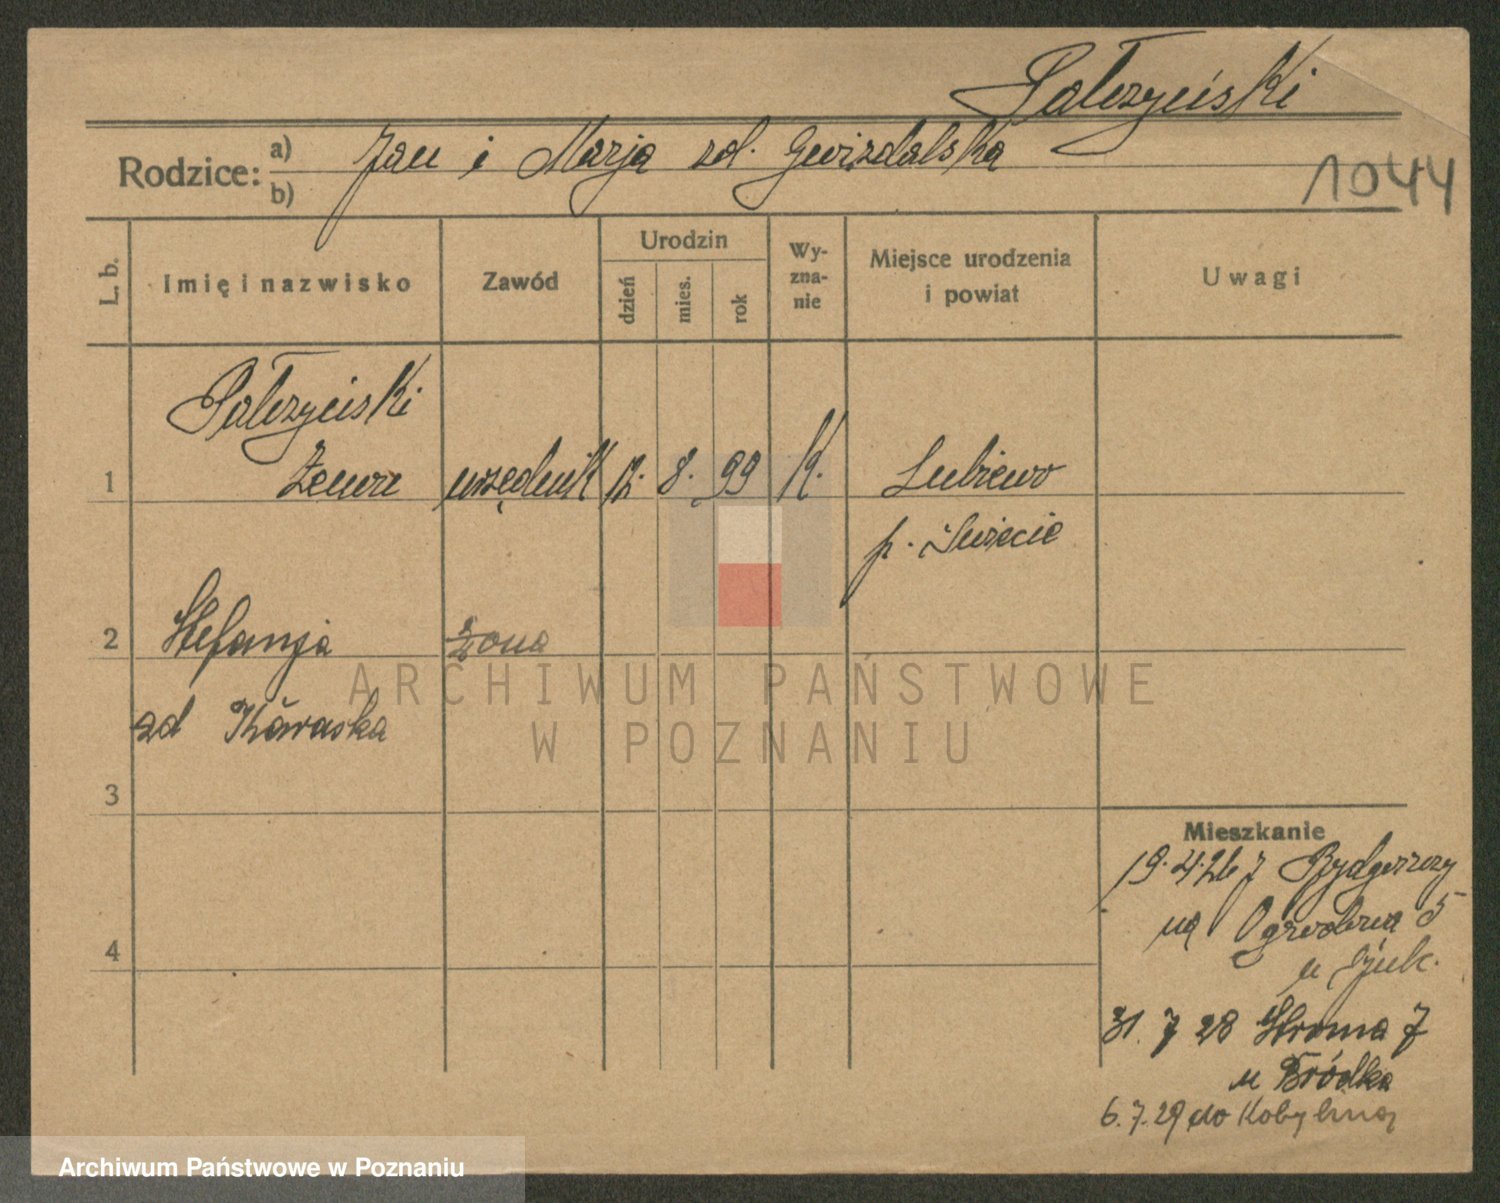 Pałczyński
Rodzice: a) Jan i Marja zd. Gwizdalska
b)
1044
L. b.
Imię i nazwisko
Zawód
Urodzin
dzień
mies.
rok
Wy-
zna-
nie
Miejsce urodzenia
i powiat
Uwagi
Pałczyński
1 Zenon urzędnik 12. 8. 99 K. Lubiewo
p. Świecie
2 Stefanja żona
zd
3
4
Mieszkanie
19.4.26 z Bydgoszczy
na Ogrodowa 5
u
31. 7 28 Stroma 7
u Bródka
6.7.29 do
ARCHIWUM PAŃSTWOWE
W POZNANIU
Archiwum Państwowe w Poznaniu